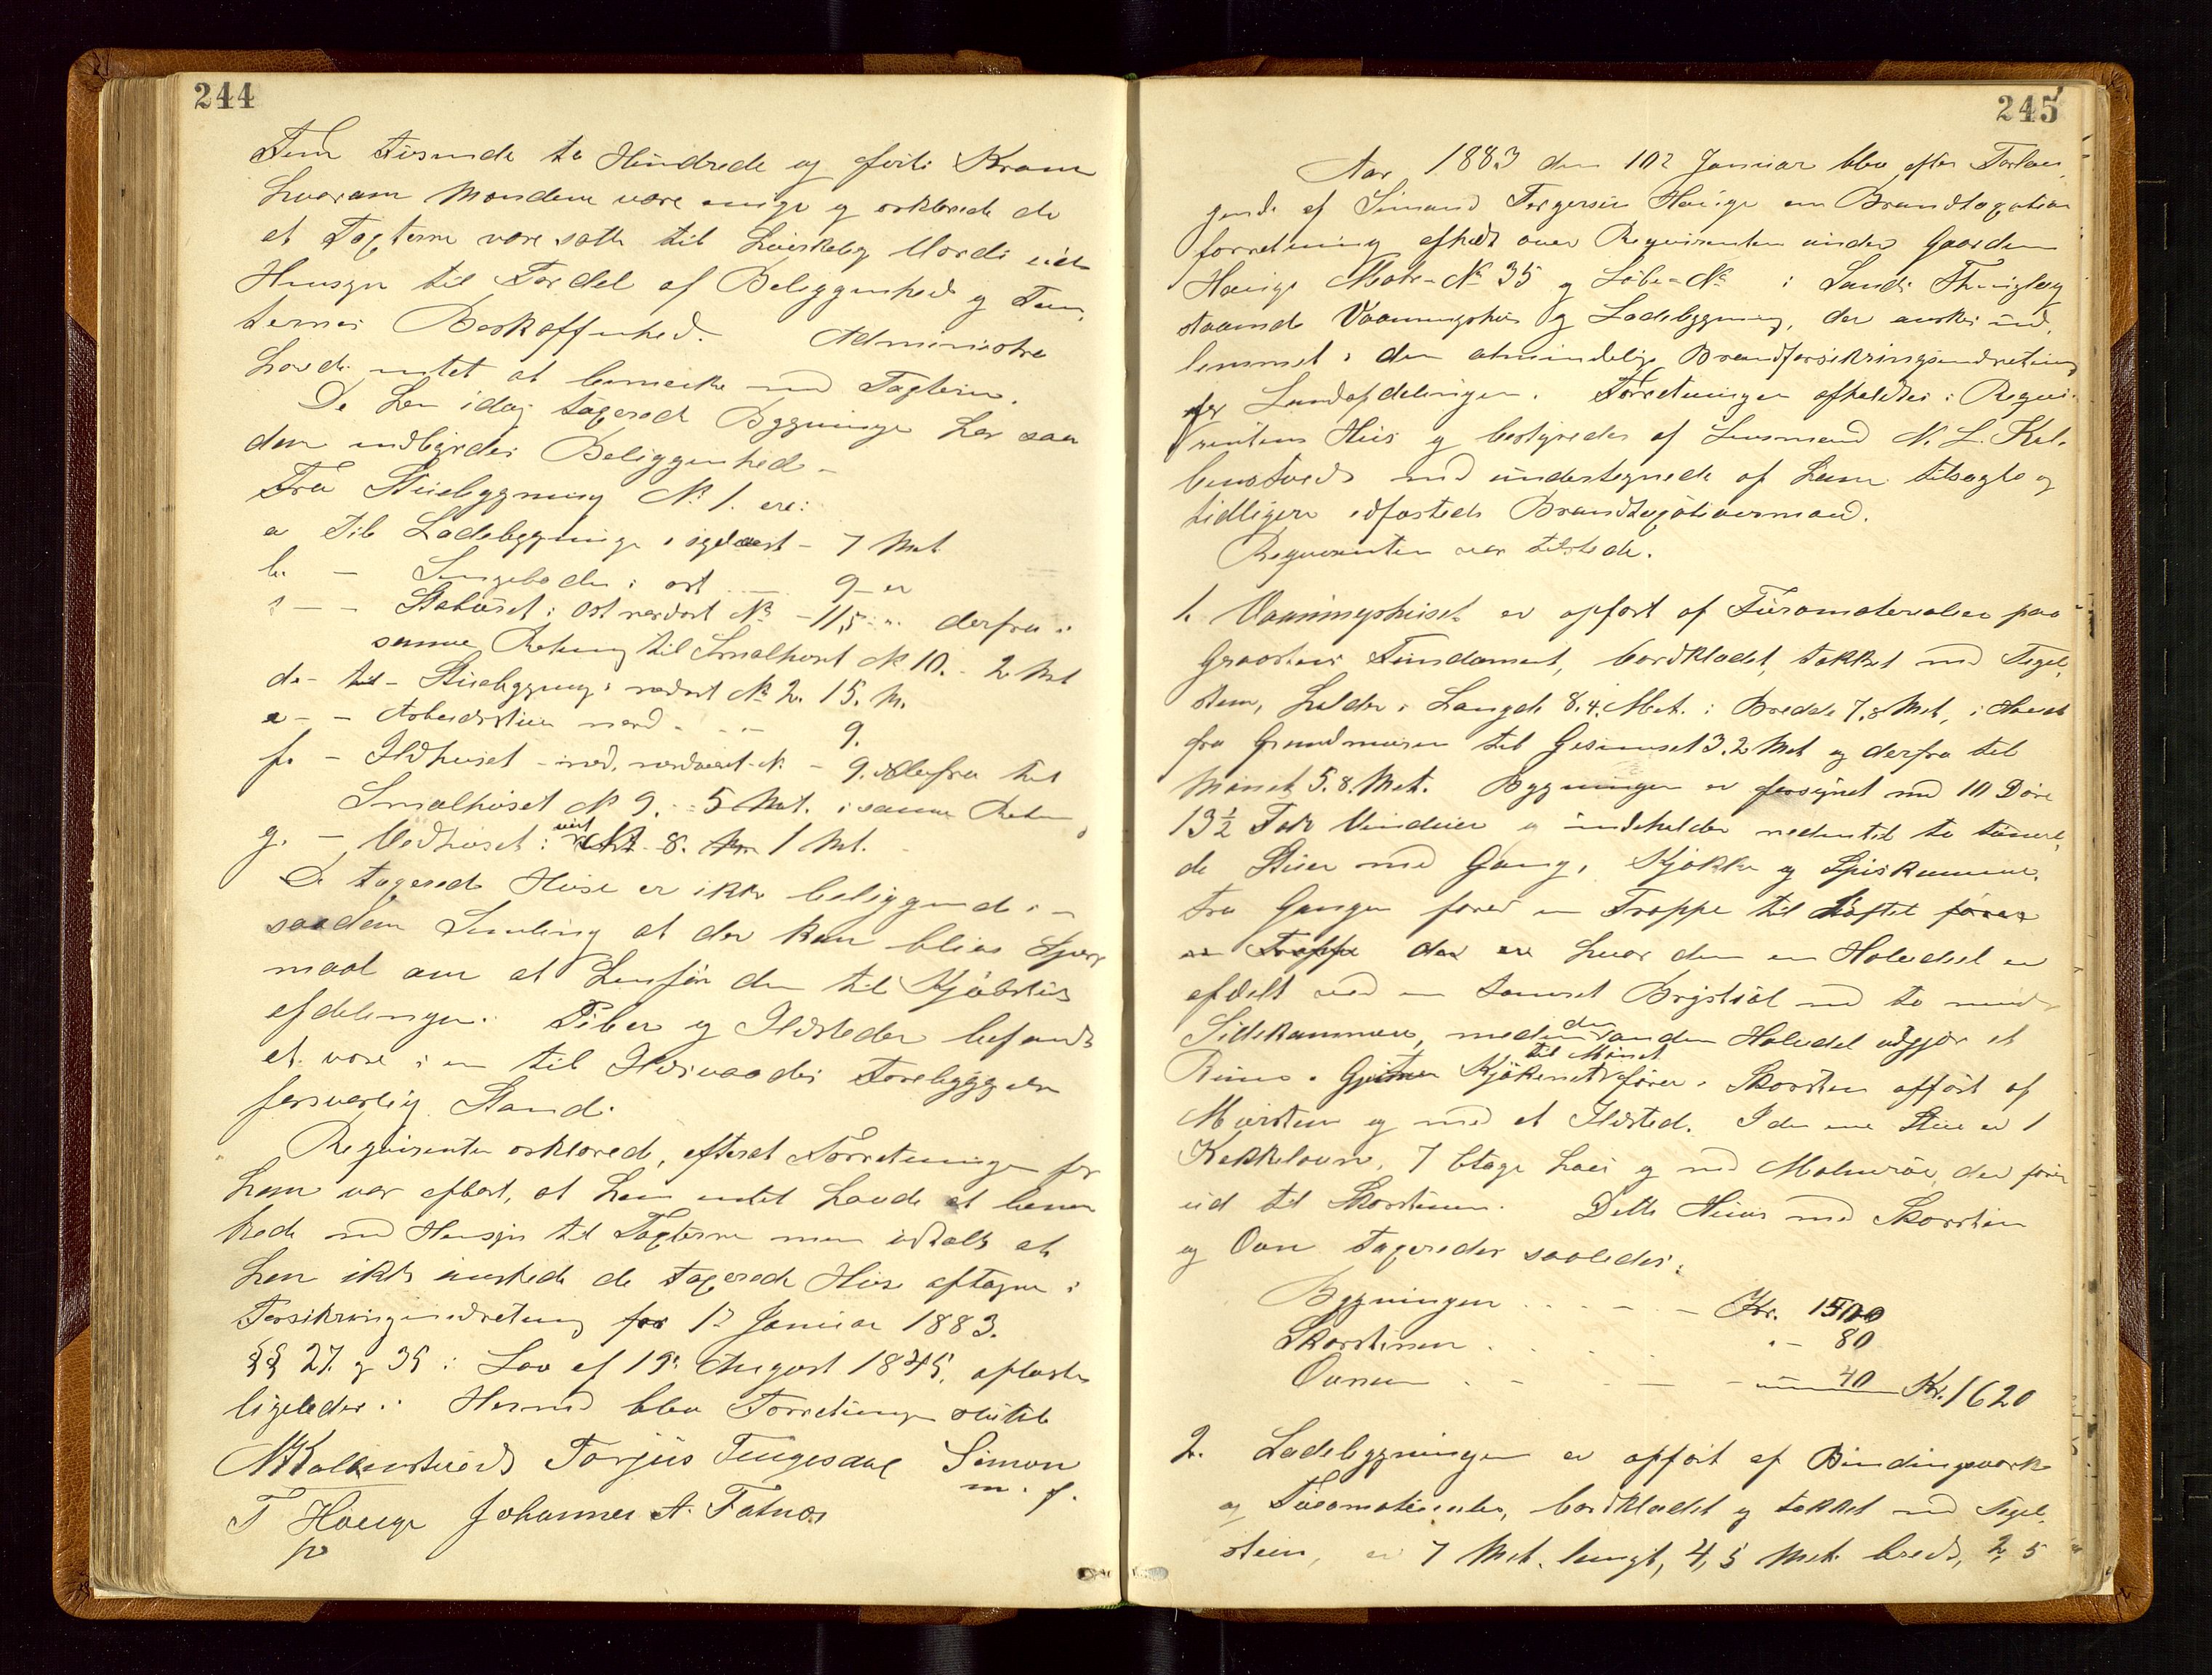 244
Fem tusinde to Hundrede og forti Kroner
hvorom Mændene vare enige og erklærede de
at Taxterne vare satte til Værdi uden
Hensyn til Fordel af Beliggenhed og Tom-
ternes Beskaffenhed. Administra
havde intet at bemærke ved Taxterne.
De her idag taxerede Bygninger har saa
dan indbyrdes Beliggenhed -
Fra Stuebygning No 1. ere:
a til Ladebygninge i sydvest - 7 Met
b. - i øst - 9 -
c - - Stabuset i ost nordost No - 11,5 - derfra i
samme Retning til Smalhuset No 10. - 2 Met
d - til - Stuebygning i nordost No 2. 15. M.
e - - Arbeidsstuen nord - - - 9.
f. - Ildhuset - nord, nordvest No - 9. derfra til
Smalhuset No 9. - 5 Met. i samme Retn,
g. - Vedhuset i vest 8. 1 Met.
De taxerede Huse er ikke beliggende i en
saadan Samling at der kan blive Spørs
maal om at henføre dem til Kjøbstads
afdelingen. Piber og Ildsteder befandtes
at være i en til Ildsvaades Forebyggelse
forsvarlig Stand.
Requirenten erklærede, efterat Forretningen for
ham var oplæst, at han intet havde at bemær
kede med Hensyn til Taxterne men udtalte at
han ikke ønskede de taxerede Huse optagne i
Forsikringsindretning før 1ste Januar 1883.
§§ 27. og 35 i Lov af 19de August 1845. oplæstes
ligeledes. Hermed blev Forretningen sluttet
N Kolbenstvedt Torjus Tengesdal Simon
T Hauge Johannes A. Fatnes m. f.
p
245
Aar 1883 den 10de Januar blev efter Forlan-
gende af Simand Torgersen Hauge en Brandtaxations
forretning afholdt over Requirenten under Gaarden
Hauge Matr-No 35 og Løbe-No i Sands Thinglag
staaende Vaaningshus og Ladebygning, der ønskes ind-
lemmet i den almindelige Brandforsikringsindretning
for Landafdelingen. Forretningen afholdtes i Requi-
rentens Hus og bestyredes af Lensmand N. L. Kol-
benstvedt med undertegnede af ham tilsagte og
tidligere edfæstede Brandtaxationsmænd.
Requirenten var tilstede.
1. Vaaningshuset er opført af Furumaterialier paa
Graastens Fundament, bordklædet, tækket med Tegl-
sten, holder i Længde 8.4. Met. i Bredde 7,8 Met, i Høide
fra Grundmuren til Gesimset 3.2 Met og derfra til
Mønet 5.8. Met. Bygningen er forsynet med 10 Døre
13½ Fag Vinduer og indeholder nedentil to tømre-
de Stuer med Gang, Kjøkken og Spiskammer.
Fra Gangen fører en Trappe til Loftet fører
en Trappe der er hvor den en Halvdel er
afdelt med en tømret Brystsal med to mindre
Sidekammere, medens den anden Halvdel udgjør et
Rum. Gjennem Kjøkkenet til Mønet fører Skorsten opført af
Mursten og med et Ildsted. I den ene Stue er 1
Kakkelovn, 7 Etage høi og med Malmrør, der fører
ud til Skorstenen. Dette Huus med Skorsten
og Ovn taxeredes saaledes:
Bygningen . . . . - - Kr. 1500
Skorstenen . . . . " - 80
Ovnen . - - - - 40 Kr. 1620
2. Ladebygningen er opført af Bindingsværk
og Furumaterialier, bordklædet og tækket med Tegl-
sten, er 7 Met. langt, 4,5 Met. bredt, 2,5